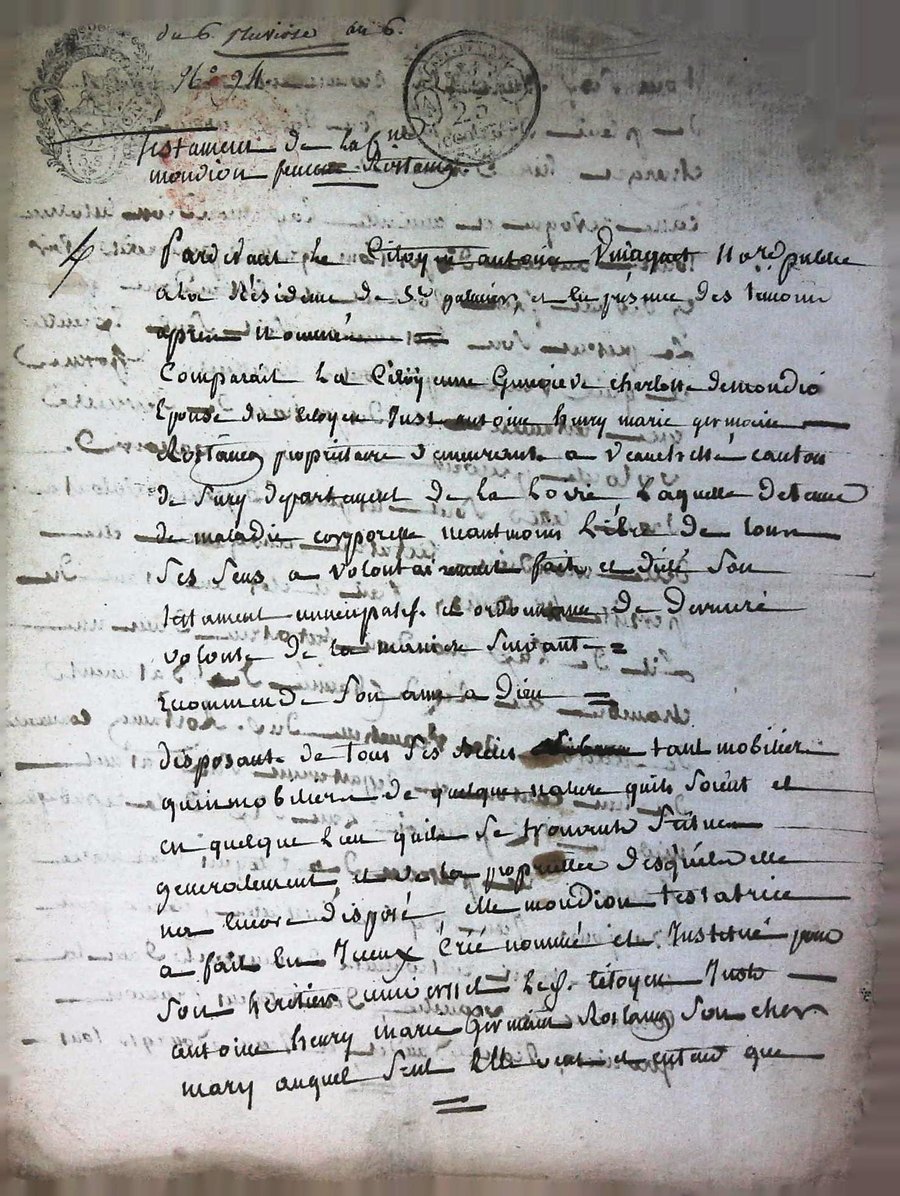 du 6. pluviose an 6.
N° 24
testament de la Cne
mondion femme Rostaing.
Pardevant le Citoyen antoine No.re public
a la Résidence de St galmier, et en présence des temoins
apres nommés
Comparait la Citoyenne Genevieve charlotte demondio
Epouse du Citoyen Just antoine henry marie germain
Rostaing proprietaire demeurant a Veauchette canton
de Sury departement de la Loire Laquelle detenue
de maladie corporelle neantmoins Libre de tous
Ses Sens, a volontairement fait et dicté Son
testament nuncupatif et ordonnance de derniere
volonté de la maniere Suivante =
Recommende Son ame a Dieu =
disposant de tous Ses biens tant mobiliers
quimmobiliers de quelque nature quils Soient et
en quelque lieu quils Se trouvent Scitues
generalement, et de la proprietté desquels elle
na encore disposé, elle mondion testatrice
a fait Créé nommé et Institué pour
Son heritier universel Le Citoyen Just
antoine henry marie Germain Rostaing Son cher
mary auquel Seul Elle veut et entend que